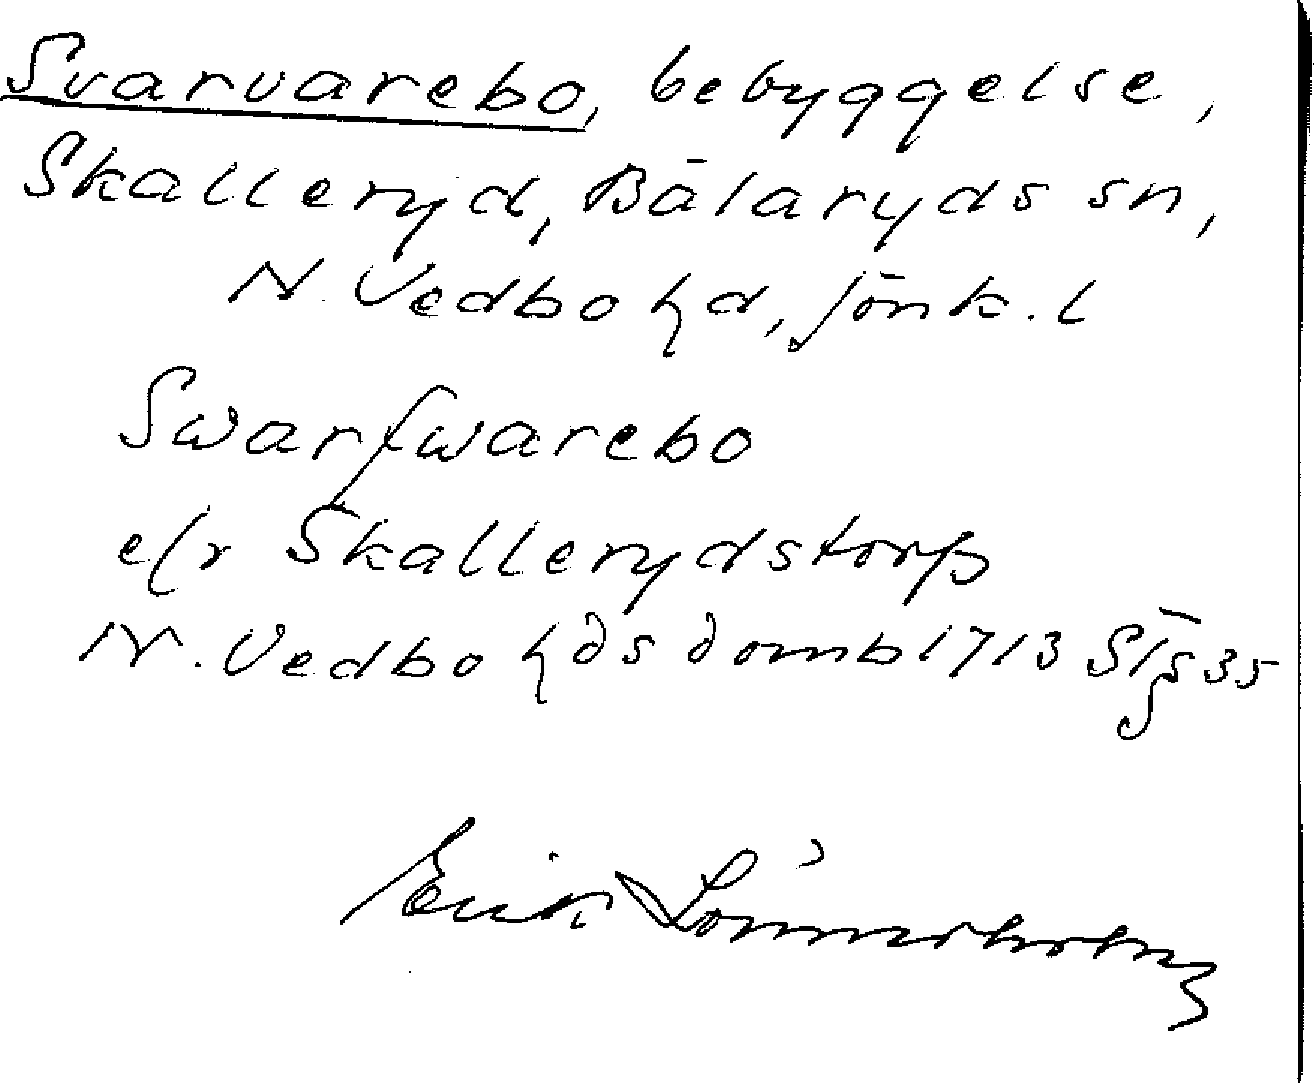 Svarvarebo, bebyggelse,
Skalleryd, Bälaryds sn,
N. Vedbo hd, Jönk. l
Swarfwarebo
e/r Skallerydstorp
N. Vedbo hds domb 1713 § 35
Erik Lönnerholm